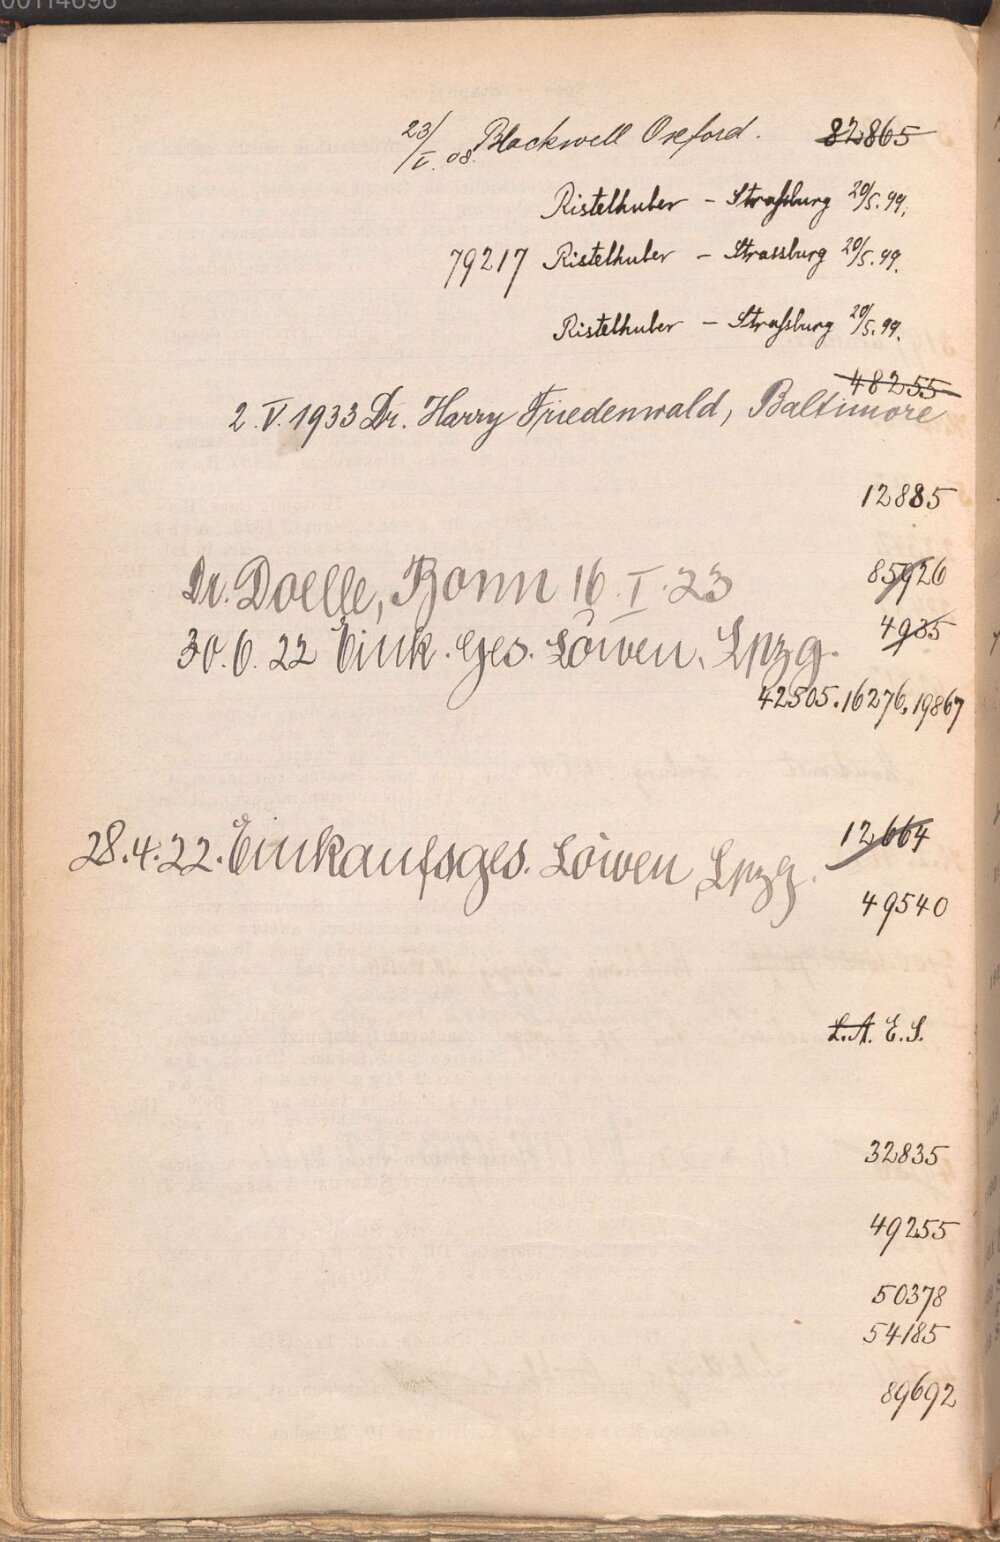 00114696
23/V. 08. Blackwell Oxford. 82865
Ristelhuber – Straßburg 20/5.99.
79217 Ristelhuber – Strassburg 20/5.99.
Ristelhuber – Straßburg 20/5.99.
48255
2.V.1933 Dr. Harry Friedenwald, Baltimore
12885
Dr. Doelle, Bonn 16.I.23 85926
30.6.22 Eink. Ges. Löwen, Lpzg. 4935
42505. 16276. 19867
28.4.22. Einkaufsges. Löwen, Lpzg. 12664
49540
L.A. E.S.
32835
49255
50378
54185
89692